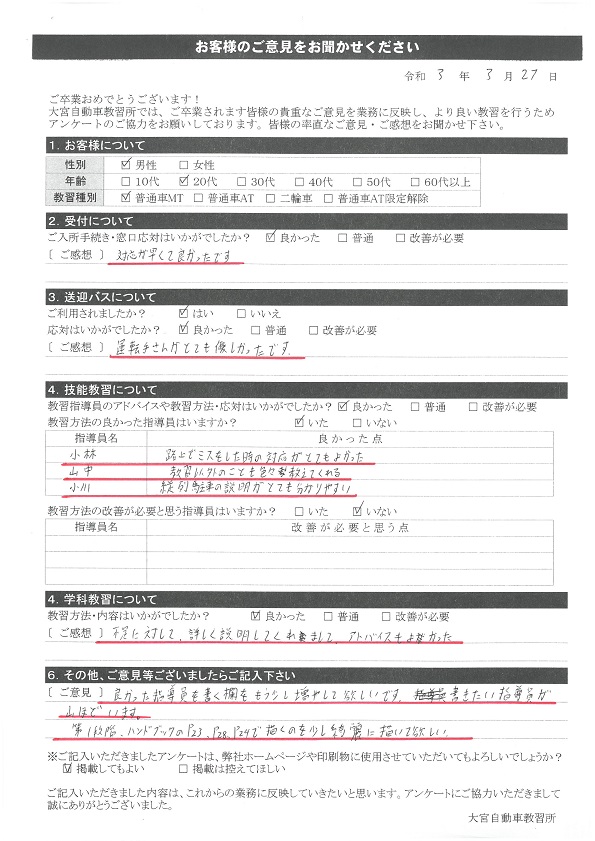 お客様のご意見をお聞かせください
令和 3 年 3 月 27 日
ご卒業おめでとうございます！
大宮自動車教習所では、ご卒業されます皆様の貴重なご意見を業務に反映し、より良い教習を行うため
アンケートのご協力をお願いしております。皆様の率直なご意見・ご感想をお聞かせ下さい。
1. お客様について
性別 ☑ 男性 □ 女性
年齢 □ 10代 ☑ 20代 □ 30代 □ 40代 □ 50代 □ 60代以上
教習種別 ☑ 普通車MT □ 普通車AT □ 二輪車 □ 普通車AT限定解除
2. 受付について
ご入所手続き・窓口応対はいかがでしたか？ ☑ 良かった □ 普通 □ 改善が必要
〔 ご感想 〕 対応が早くて良かったです
3. 送迎バスについて
ご利用されましたか？ ☑ はい □ いいえ
応対はいかがでしたか？ ☑ 良かった □ 普通 □ 改善が必要
〔 ご感想 〕 運転手さんがとても優しかったです.
4. 技能教習について
教習指導員のアドバイスや教習方法・応対はいかがでしたか？ ☑ 良かった □ 普通 □ 改善が必要
教習方法の良かった指導員はいますか？ ☑ いた □ いない
指導員名 良かった点
小林 路上でミスをした時の対応がとてもよかった
山中 教習以外のことも色々教えてくれる
小川 縦列駐車の説明がとても分かりやすい
教習方法の改善が必要と思う指導員はいますか？ □ いた ☑ いない
指導員名 改善が必要と思う点
4. 学科教習について
教習方法・内容はいかがでしたか？ ☑ 良かった □ 普通 □ 改善が必要
〔 ご感想 〕 に対して、詳しく説明してくれまして、アドバイスもよかった
6. その他、ご意見等ございましたらご記入下さい
〔 ご意見 〕 良かった指導員を書く欄をもう少し増やして欲しいです. 書きたい指導員が
山ほどいます。
第1段階、ハンドブックのP23、P28、P24で描くのを少し綺麗に描いて欲しい.
※ご記入いただきましたアンケートは、弊社ホームページや印刷物に使用させていただいてもよろしいでしょうか？
☑ 掲載してもよい □ 掲載は控えてほしい
ご記入いただきました内容は、これからの業務に反映していきたいと思います。アンケートにご協力いただきまして
誠にありがとうございました。
大宮自動車教習所